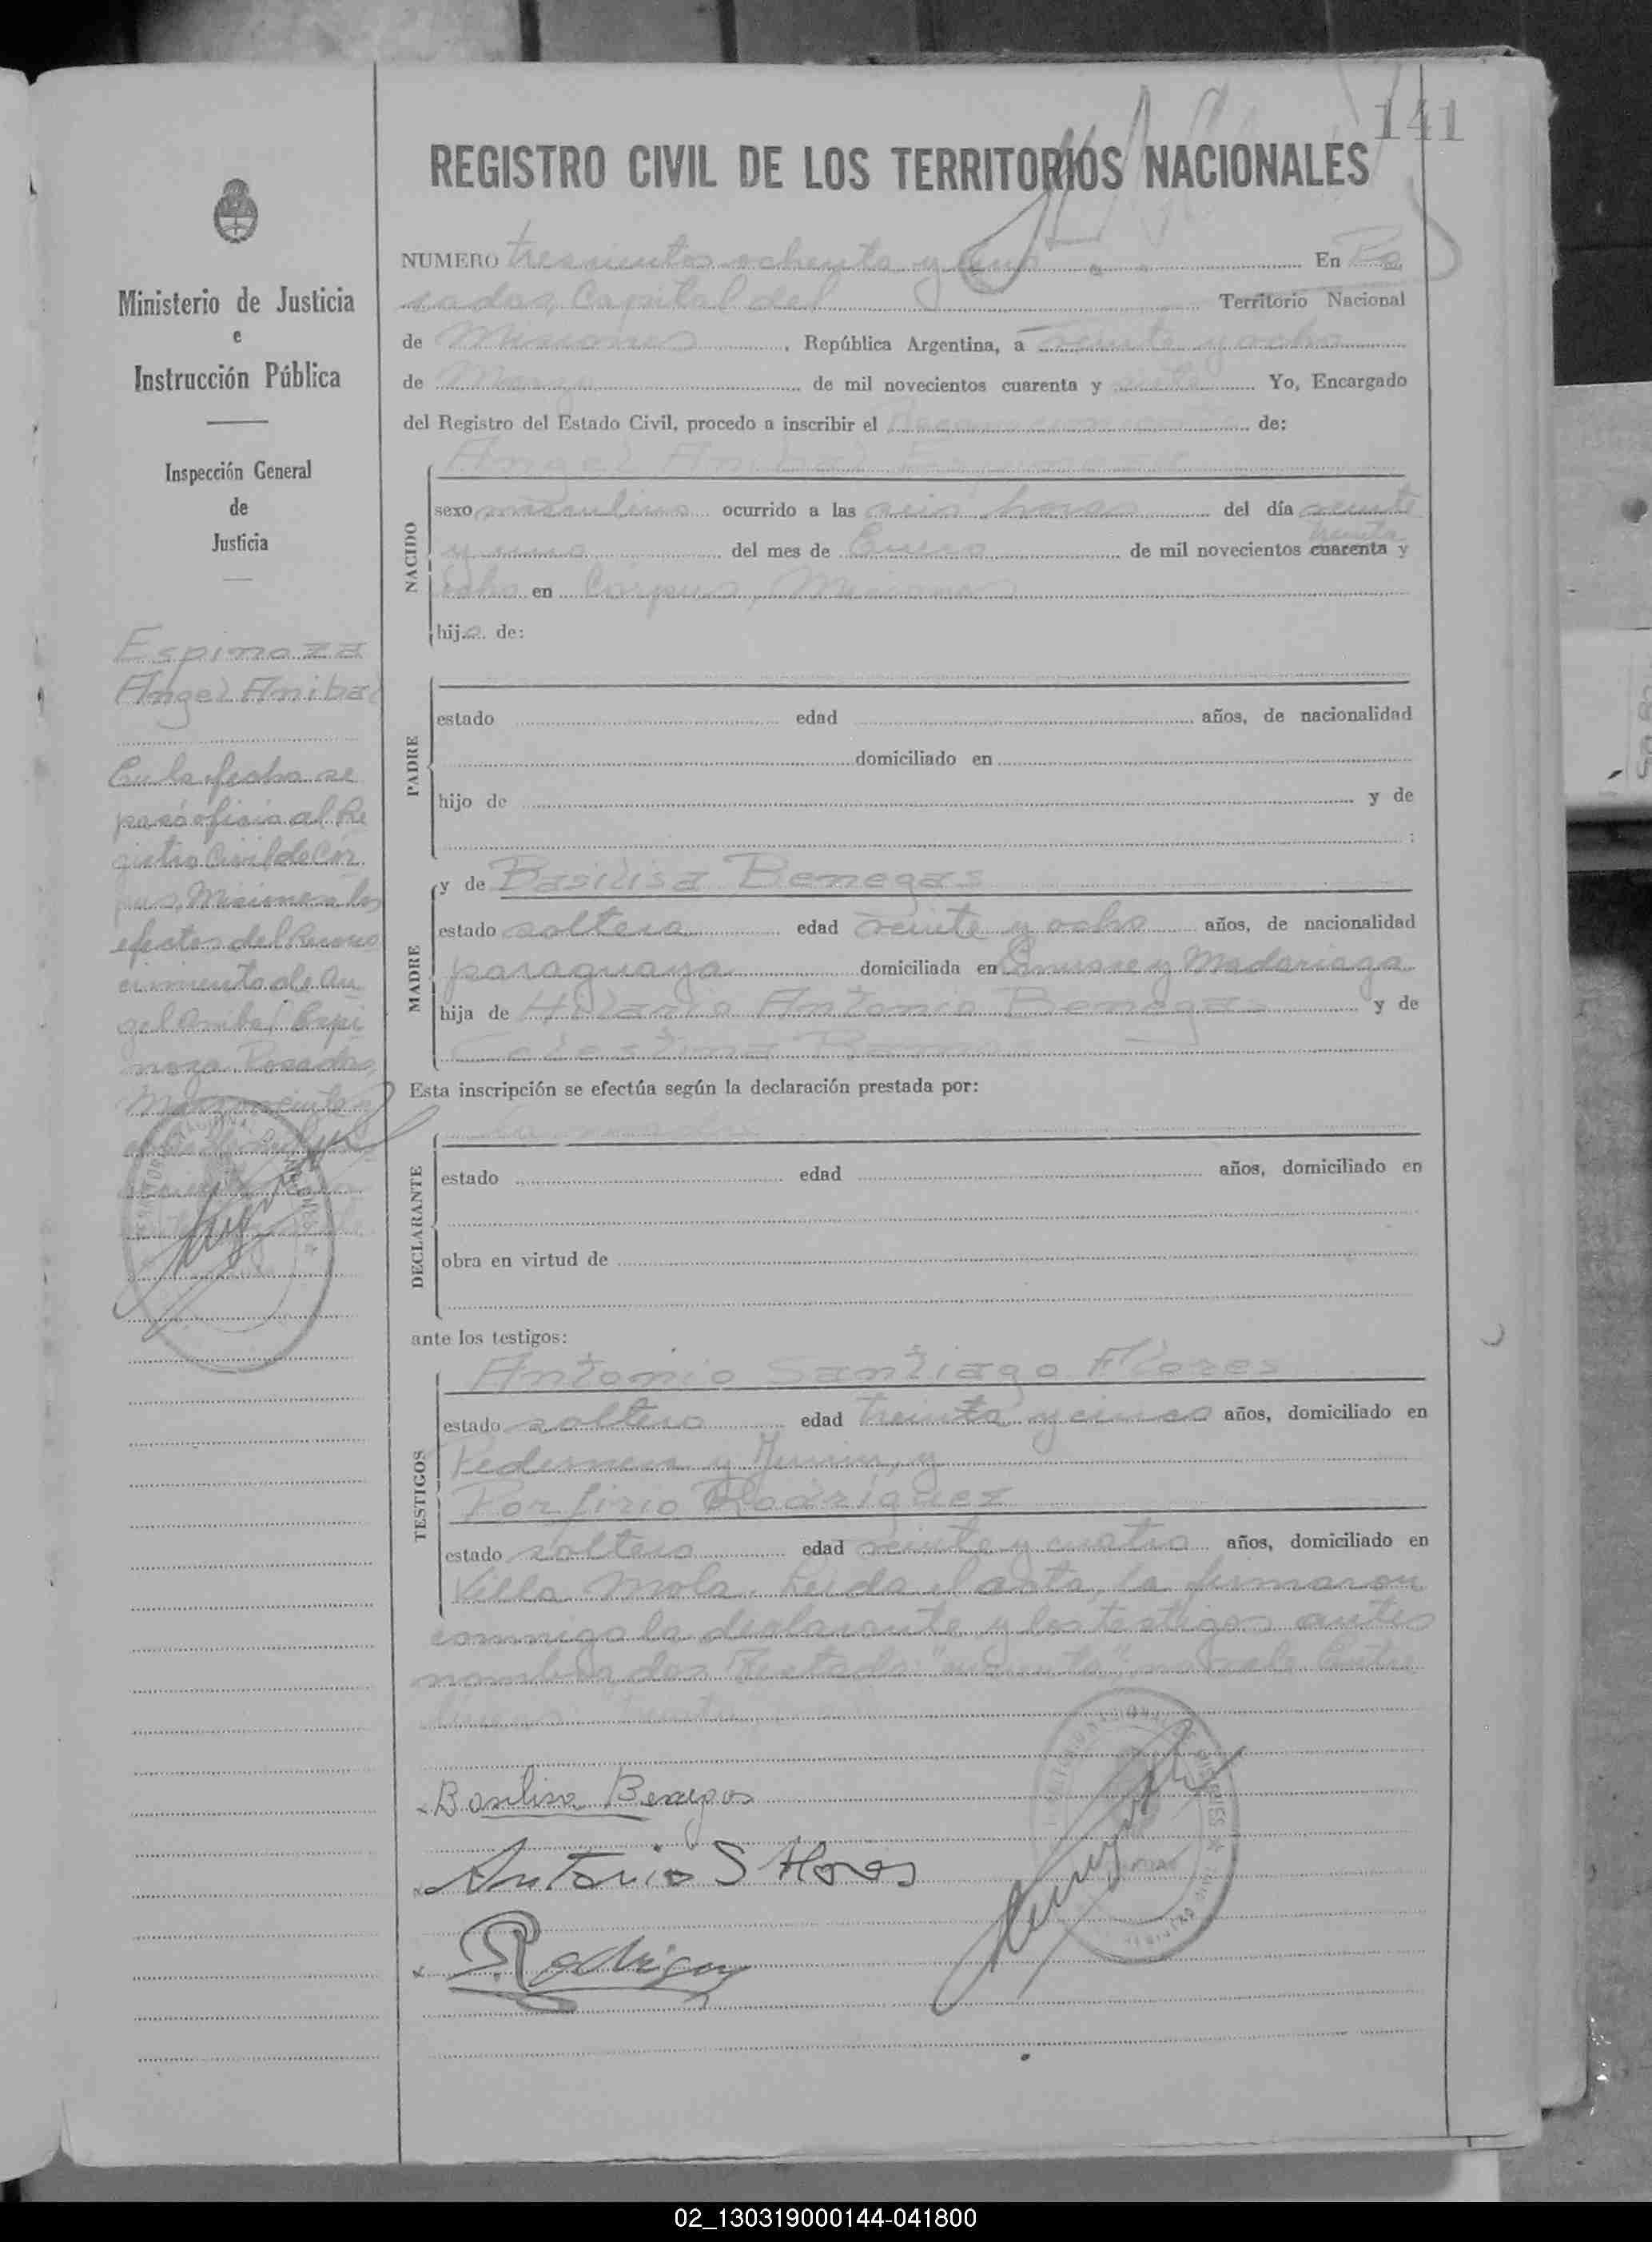 141
REGISTRO CIVIL DE LOS TERRITORIOS NACIONALES
Ministerio de Justicia
e
Instrucción Pública
Inspección General
de
Justicia
Espinoza
Angel Anibal
En la fecha se
pasó oficio al Re
gistro Civil de Cor
pus, Misiones a los
efectos del Recono
cimiento de An
gel Anibal Espi
noza. Posadas,
NUMERO trescientos ochenta y uno En Po
sadas, Capital del Territorio Nacional
de Misiones, República Argentina, a veinte y ocho
de Marzo de mil novecientos cuarenta y siete Yo, Encargado
del Registro del Estado Civil, procedo a inscribir el Reconocimiento de:
Angel Anibal Espinoza
NACIDO
sexo masculino ocurrido a las seis horas del día veinte
treinta
y uno del mes de Enero de mil novecientos cuarenta y
ocho en Corpus, Misiones
hijo de:
PADRE
estado edad años, de nacionalidad
domiciliado en
hijo de y de
:
MADRE
y de Basilisa Benegas
estado soltera edad veinte y ocho años, de nacionalidad
paraguaya domiciliada en y Madariaga
hija de Hilario Antonio Benegas y de
Celestina
Esta inscripción se efectúa según la declaración prestada por:
la madre
DECLARANTE
estado edad años, domiciliado en
obra en virtud de
ante los testigos:
TESTIGOS
Antonio Santiago Flores
estado soltero edad treinta y cinco años, domiciliado en
Pedernera y Junin, y
Porfirio Rodriguez
estado soltero edad veinte y cuatro años, domiciliado en
Villa Mola. Leida el acta, la firmaron
conmigo la declarante y los testigos antes
nombrados. Testado: "cuarenta" no vale. Entre
lineas: treinta
Basilisa Benegas
Antonio S Flores
P. Rodriguez
02_130319000144-041800